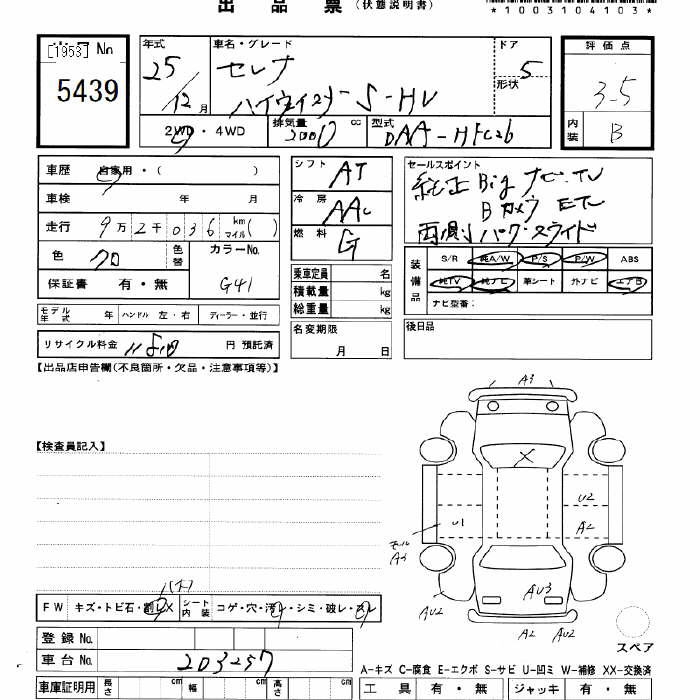 出品票 (状態説明書)
*1003104103*
[1953] No
5439
年式 車名・グレード ドア 評価点
25 セレナ 5 3.5
12月 ハイウェイスター S-HV 形状
2WD・4WD 排気量 2000 cc 型式 DAA-HFC26 内装 B
車歴 自家用・( ) シフト AT セールスポイント
車検 年 月 冷房 AAC 純正 Big ナビ.TV
走行 9万2千036 km マイル( ) Bカメラ ETC
燃料 G 両側 パワースライド
色 クロ 色替 カラーNo. G41
装備品 S/R 純A/W P/S P/W ABS
保証書 有・無 乗車定員 名 純TV 純ナビ 革シート 外ナビ エアB
積載量 kg ナビ型番:
モデル年式 年 ハンドル 左・右 ディーラー・並行 総重量 kg
名変期限 月 日 後日品
リサイクル料金 円 預託済
【出品店申告欄(不良箇所・欠品・注意事項等)】
A3
【検査員記入】
X
U2
U1 A2
モール A3
AU3
AU2 A2 AU2
FW キズ・トビ石・割レX シート内装 コゲ・穴・汚レ・シミ・破レ・スレ
スペア
登録 No.
車台 No. 203257
A-キズ C-腐食 E-エクボ S-サビ U-凹ミ W-補修 XX-交換済
車庫証明用 長さ cm 幅 cm 高さ cm 工具 有・無 ジャッキ 有・無